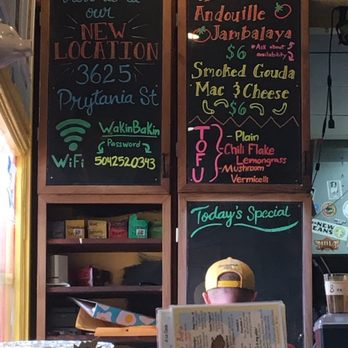 our
NEW
LOCATION
3625
Prytania St
WiFi
WakinBakin
Password
5042520343
Andouille
Jambalaya
$6
*Ask about
availability
Smoked Gouda
Mac & Cheese
$6
TOFU
-Plain
-Chili Flake
Lemongrass
-Mushroom
Vermicelli
Today's Special
NEW